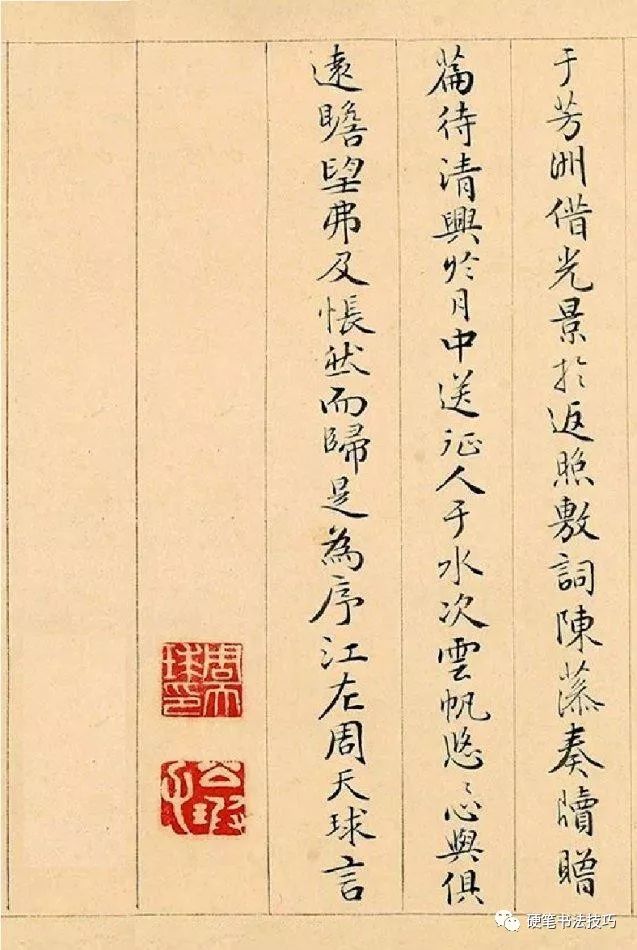 于芳洲借光景於返照敷詞陳奏牘贈
篇待清興於月中送征人于水次雲帆悠〻心與俱
遠瞻望弗及悵然而歸是為序江左周天球言
周天球印
公瑕
硬笔书法技巧